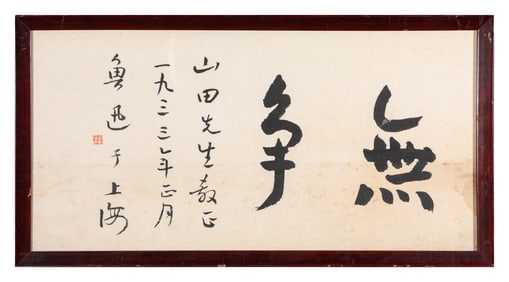 無
争
山田先生教正
一九三三年正月
魯迅于上海